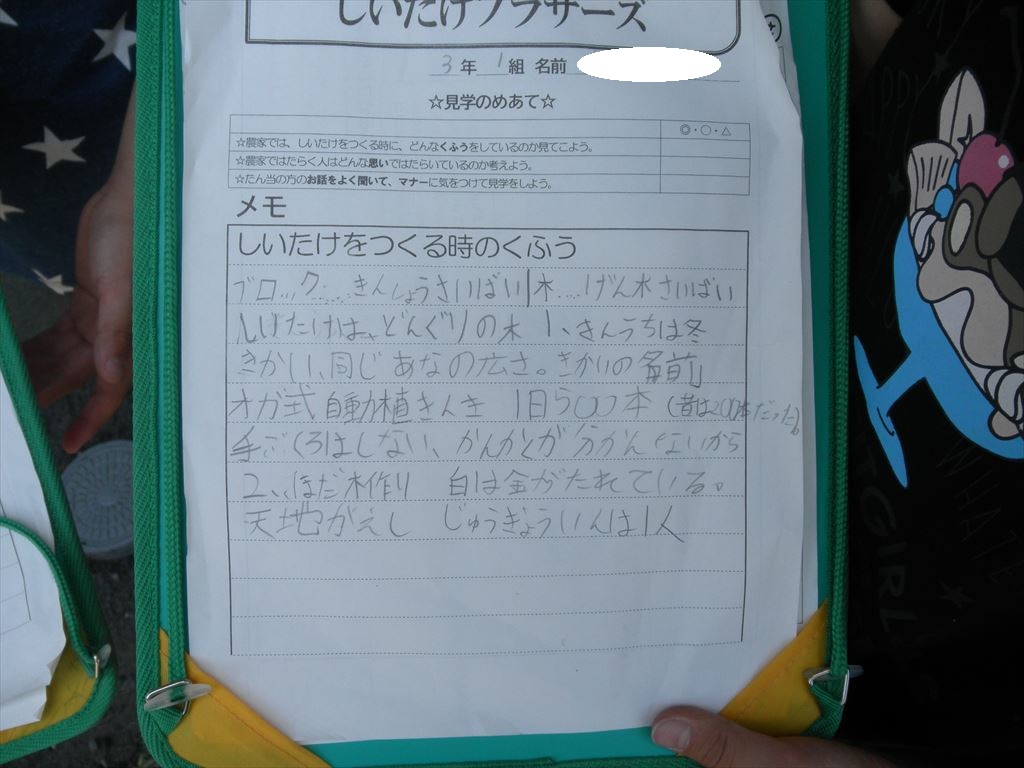 しいたけブラザーズ
3年 1組 名前
☆見学のめあて☆
◎・○・△
☆農家では、しいたけをつくる時に、どんなくふうをしているのか見てこよう。
☆農家ではたらく人はどんな思いではたらいているのか考えよう。
☆たん当の方のお話をよく聞いて、マナーに気をつけて見学をしよう。
メモ
しいたけをつくる時のくふう
ブロック……きんしょうさいばい|木……げん木さいばい
しいたけは、どんぐりの木 1、きんうちは冬
きかい、同じあなの広さ。きかいの名前」
オガ式自動植きんき 1日500本(昔は200本だった)
手ぶくろはしない、かんかくが分かんないから
2、ほだ木作り 白は金がたれている。
天地がえし じゅうぎょういんは1人